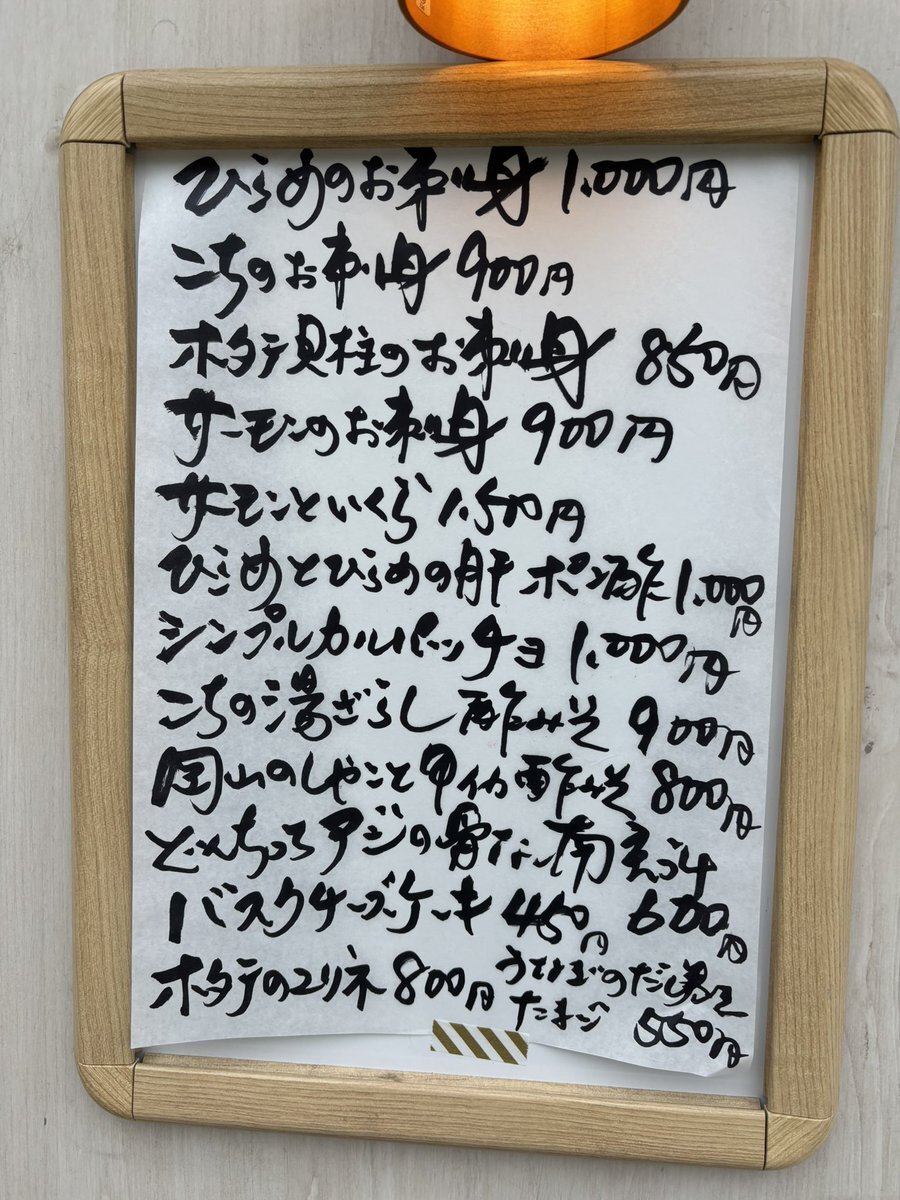 ひらめのお刺身 1.000円
こちのお刺身 900円
ホタテ貝柱のお刺身 850円
サーモンのお刺身 900円
サーモンといくら 1.500円
ひらめとひらめの肝ポン酢 1.000円
シンプルカルパッチョ 1.000円
こちの湯ざらし酢みそ 900円
岡山のしゃこと甲イカ酢みそ 800円
どんちっちアジの骨ない南蛮づけ
600円
バスクチーズケーキ 450円
ホタテのマリネ 800円
のだし
たまご
550円